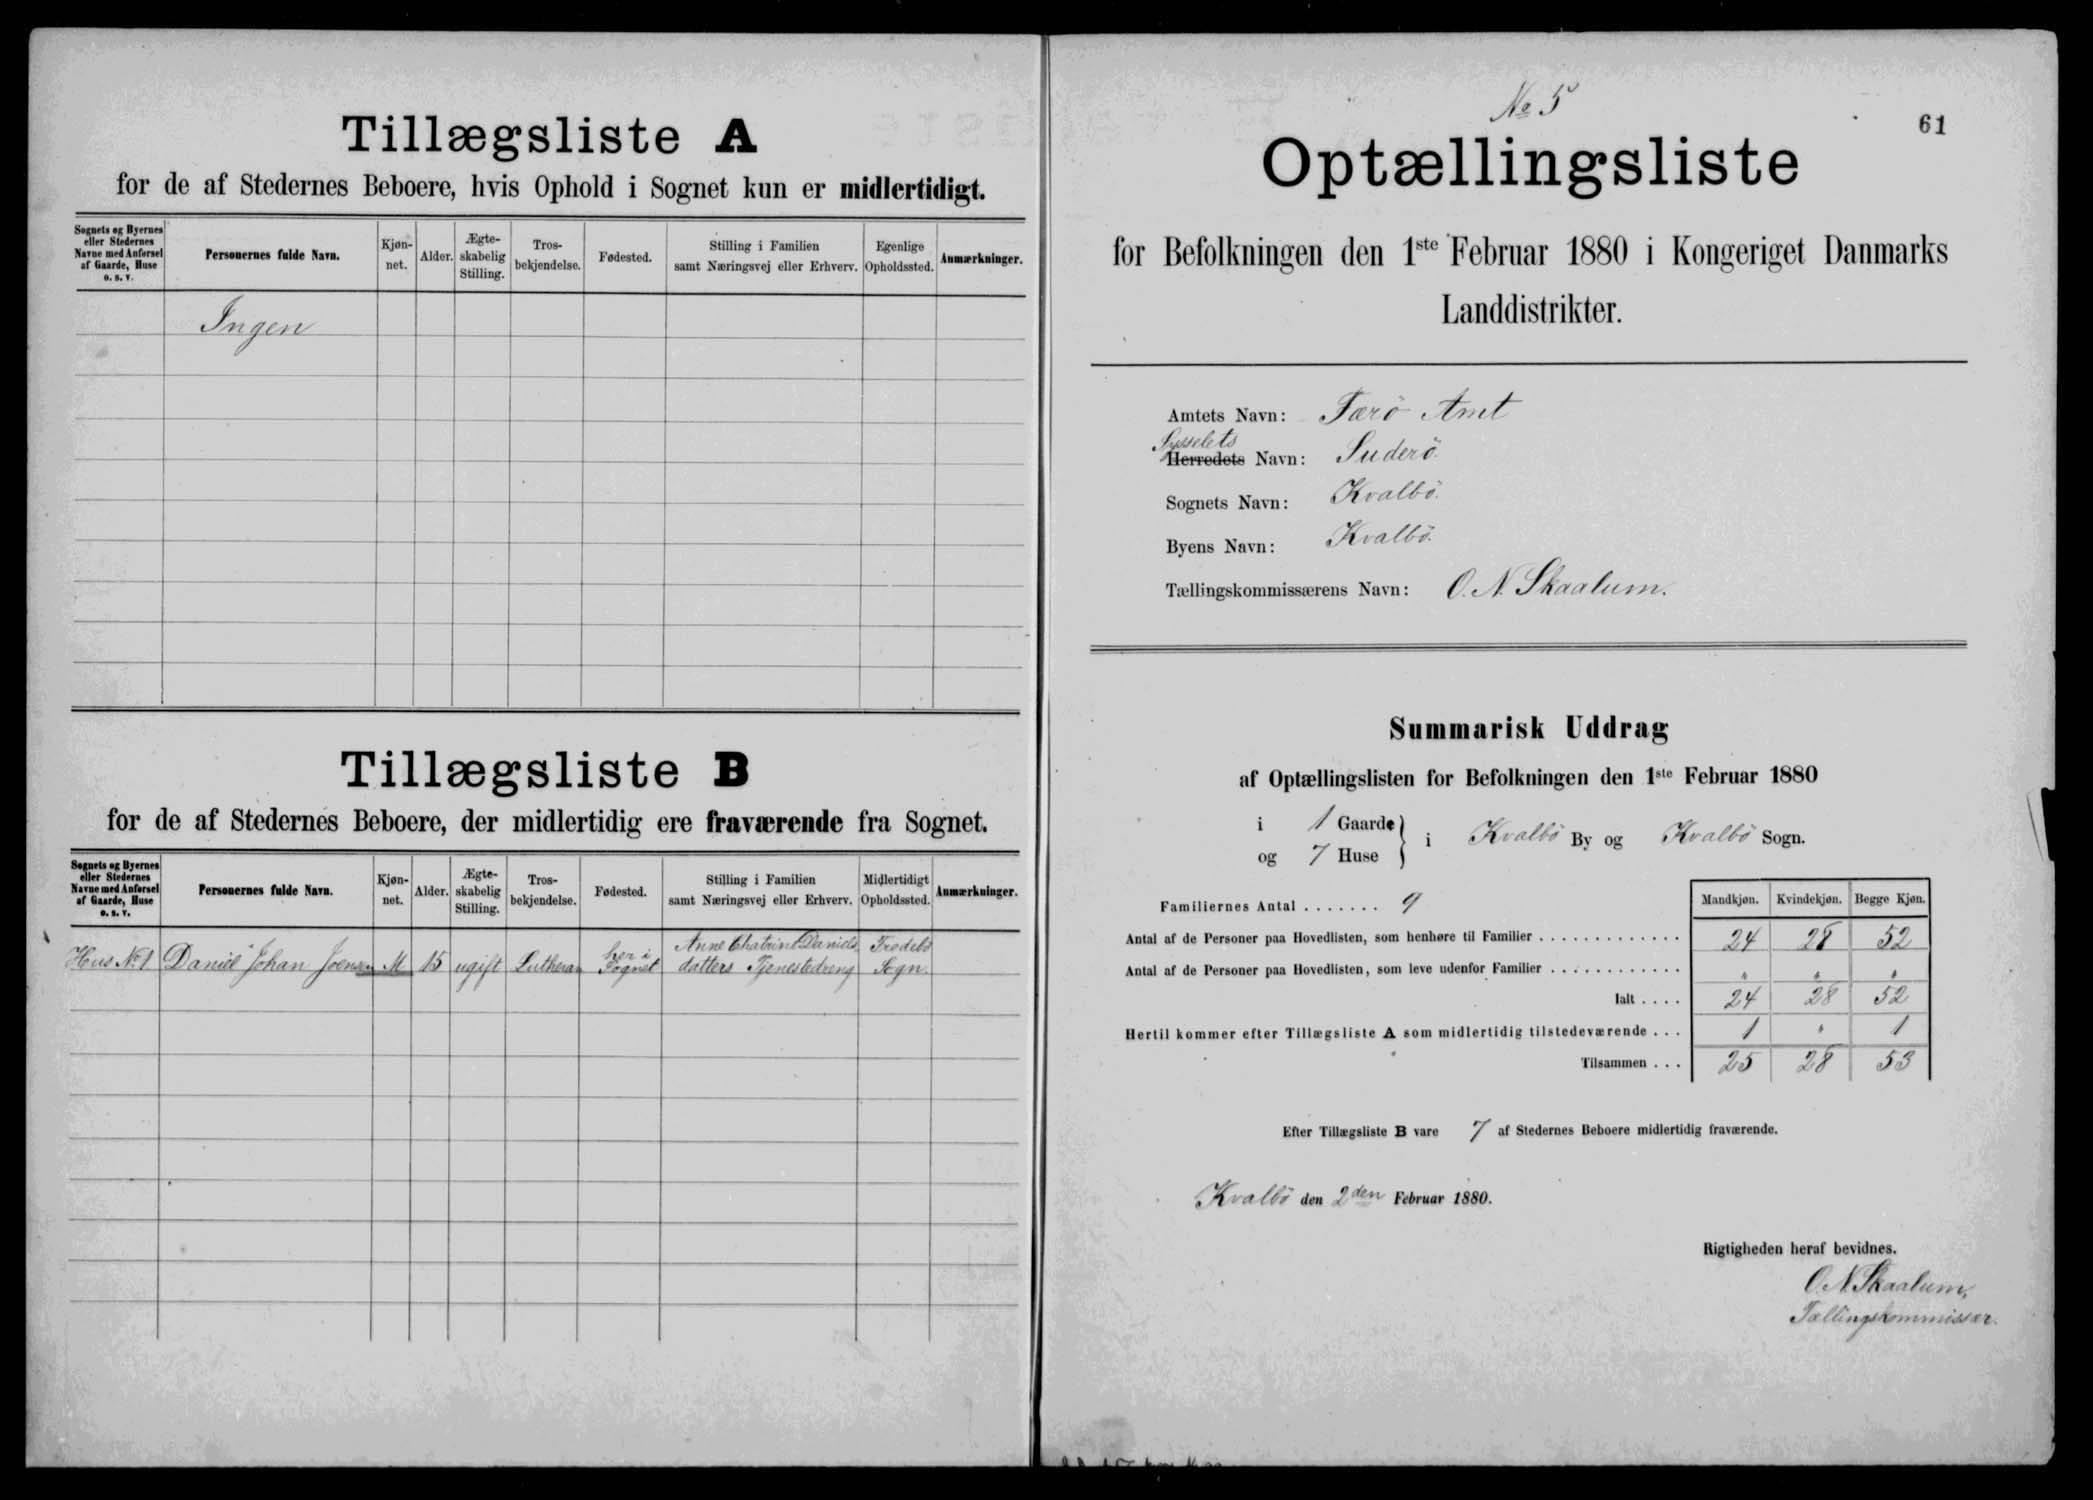 Tillægsliste A
for de af Stedernes Beboere, hvis Ophold i Sognet kun er midlertidigt.
Sognets og Byernes eller Stedernes Navne med Anførsel af Gaarde, Huse o. s. v. | Personernes fulde Navn. | Kjønnet. | Alder. | Ægteskabelig Stilling. | Trosbekjendelse. | Fødested. | Stilling i Familien samt Næringsvej eller Erhverv. | Egenlige Opholdssted. | Anmærkninger.
Ingen
Tillægsliste B
for de af Stedernes Beboere, der midlertidig ere fraværende fra Sognet.
Sognets og Byernes eller Stedernes Navne med Anførsel af Gaarde, Huse o. s. v. | Personernes fulde Navn. | Kjønnet. | Alder. | Ægteskabelig Stilling. | Trosbekjendelse. | Fødested. | Stilling i Familien samt Næringsvej eller Erhverv. | Midlertidigt Opholdssted. | Anmærkninger.
Hus No 1 | Daniel Johan Joensen | M | 15 | ugift | Lutheran | her i Sognet | Anne Chatrine Danielsdatters Tjenestedreng | Frodebö Sogn.
No 5
61
Optællingsliste
for Befolkningen den 1ste Februar 1880 i Kongeriget Danmarks
Landdistrikter.
Amtets Navn: Færö Amt
Sysselets
Herredets Navn: Suderö.
Sognets Navn: Kvalbö.
Byens Navn: Kvalbö.
Tællingskommissærens Navn: O. N. Skaalum.
Summarisk Uddrag
af Optællingslisten for Befolkningen den 1ste Februar 1880
i 1 Gaarde
og 7 Huse } i Kvalbö By og Kvalbö Sogn.
Mandkjøn. | Kvindekjøn. | Begge Kjøn.
Familiernes Antal ....... 9
Antal af de Personer paa Hovedlisten, som henhøre til Familier ............. 24 | 28 | 52
Antal af de Personer paa Hovedlisten, som leve udenfor Familier ............ " | " | "
Ialt .... 24 | 28 | 52
Hertil kommer efter Tillægsliste A som midlertidig tilstedeværende ... 1 | " | 1
Tilsammen ... 25 | 28 | 53
Efter Tillægsliste B vare 7 af Stedernes Beboere midlertidig fraværende.
Kvalbö den 2den Februar 1880.
Rigtigheden heraf bevidnes.
O. N. Skaalum,
Tællingskommissær.